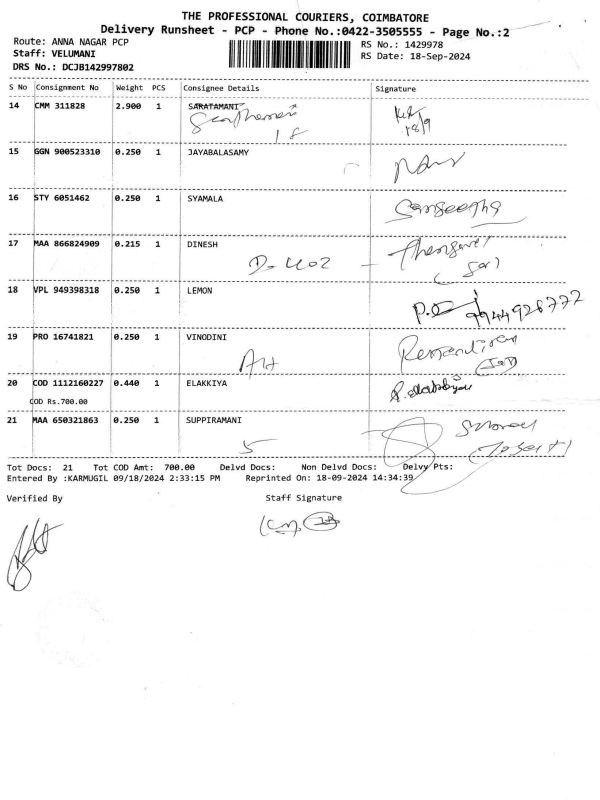 THE PROFESSIONAL COURIERS, COIMBATORE
Delivery Runsheet - PCP - Phone No.:0422-3505555 - Page No.:2
Route: ANNA NAGAR PCP
RS No.: 1429978
Staff: VELUMANI
RS Date: 18-Sep-2024
DRS No.: DCJB142997802
S No Consignment No Weight PCS Consignee Details Signature
14 CMM 311828 2.900 1 SARATAMANI
18/9
18
15 GGN 900523310 0.250 1 JAYABALASAMY
16 STY 6051462 0.250 1 SYAMALA
Sangeetha
17 MAA 866824909 0.215 1 DINESH
18 VPL 949398318 0.250 1 LEMON
9944926772
19 PRO 16741821 0.250 1 VINODINI
20 COD 1112160227 0.440 1 ELAKKIYA
COD Rs.700.00
21 MAA 650321863 0.250 1 SUPPIRAMANI
5
Tot Docs: 21 Tot COD Amt: 700.00 Delvd Docs: Non Delvd Docs: Delvy Pts:
Entered By :KARMUGIL 09/18/2024 2:33:15 PM Reprinted On: 18-09-2024 14:34:39
Verified By Staff Signature